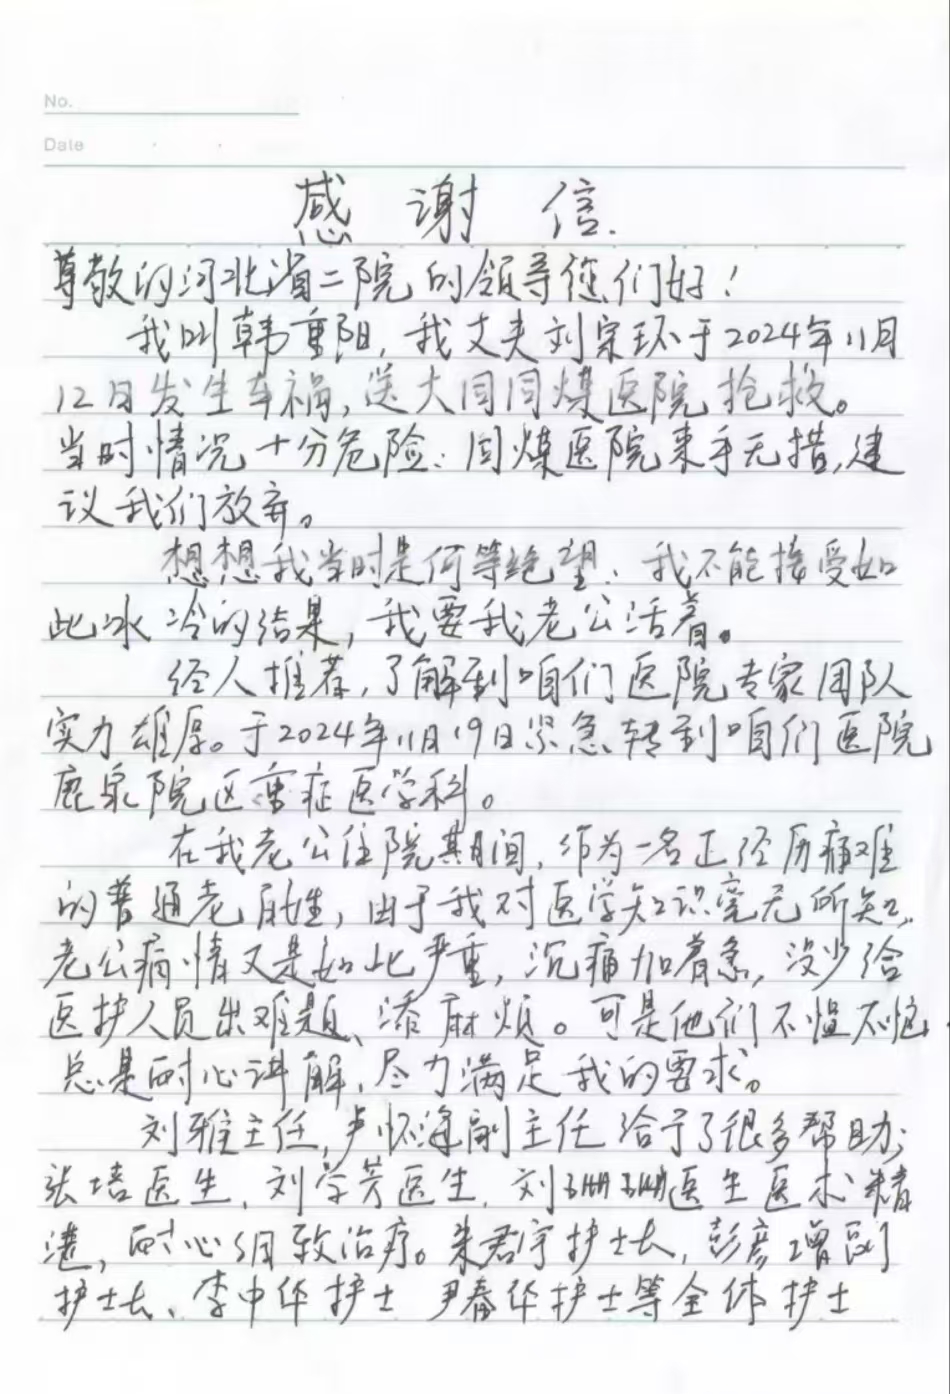 No.
Date
感谢信.
尊敬的河北省二院的领导您们好！
我叫韩重阳,我丈夫刘宗环于2024年11月
12日发生车祸,送大同同煤医院抢救。
当时情况十分危险:同煤医院束手无措,建
议我们放弃。
想想我当时是何等绝望:我不能接受如
此冰冷的结果,我要我老公活着。
经人推荐,了解到咱们医院专家团队
实力雄厚。于2024年11月19日紧急转到咱们医院
鹿泉院区重症医学科。
在我老公住院期间,作为一名正经历痛难
的普通老百姓,由于我对医学知识毫无所知,
老公病情又是如此严重,沉痛加着急,没少给
医护人员出难题、添麻烦。可是他们不愠不恼
总是耐心讲解,尽力满足我的要求。
刘雅主任,卢怀海副主任给予了很多帮助;
张培医生,刘学芳医生,刘珊珊医生医术精
湛,耐心细致治疗。朱君宇护士长,彭彦增副
护士长、李中华护士 尹春华护士等全体护士